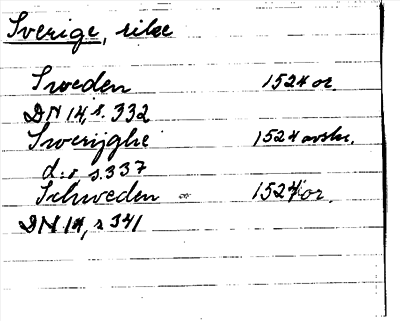 Sverige, rike
Sweden 1524 or.
DN 14, s. 332
Swerijghe 1524 avskr.
d:o, s. 337
Schweden 1524 or.
DN 14, s 341